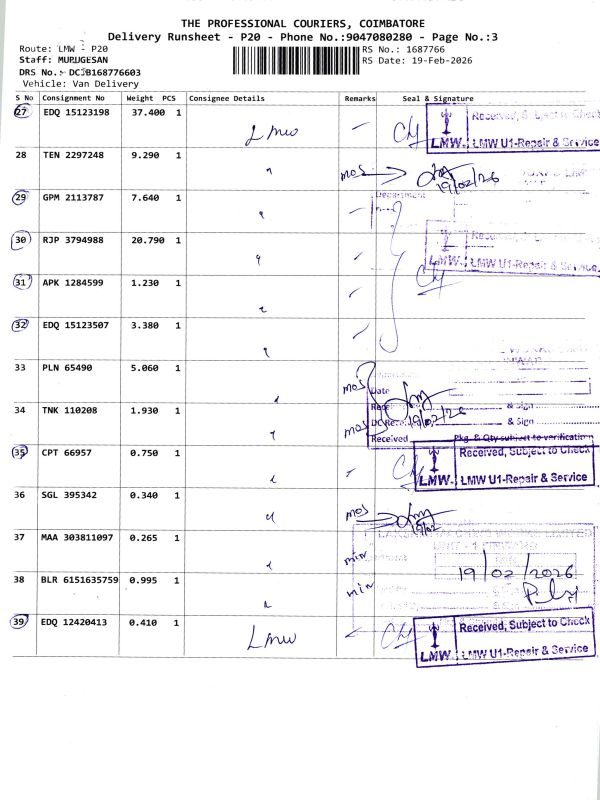 THE PROFESSIONAL COURIERS, COIMBATORE
Delivery Runsheet - P20 - Phone No.:9047080280 - Page No.:3
Route: LMW - P20
RS No.: 1687766
Staff: MURUGESAN
RS Date: 19-Feb-2026
DRS No.:- DCJB168776603
Vehicle: Van Delivery
S No Consignment No Weight PCS Consignee Details Remarks Seal & Signature
27 EDQ 15123198 37.400 1 LMW
Received, Subject to Check
LMW. LMW U1-Repair & Service
28 TEN 2297248 9.290 1 " mos
19/02/26
29 GPM 2113787 7.640 1 "
Department
30 RJP 3794988 20.790 1 "
LMW. LMW U1-Repair & Service
31 APK 1284599 1.230 1 "
32 EDQ 15123507 3.380 1 "
33 PLN 65490 5.060 1 " mos
Date
34 TNK 110208 1.930 1 " mos
& Sign
19/02/26
& Sign
Received Pkg. & Qty subject to verification
35 CPT 66957 0.750 1 "
Received, Subject to Check
LMW. LMW U1-Repair & Service
36 SGL 395342 0.340 1 " mos
19/02
37 MAA 303811097 0.265 1 " min
UNIT - 1
19/02/2026
38 BLR 6151635759 0.995 1 " min
39 EDQ 12420413 0.410 1 LMW
Received, Subject to Check
LMW. LMW U1-Repair & Service